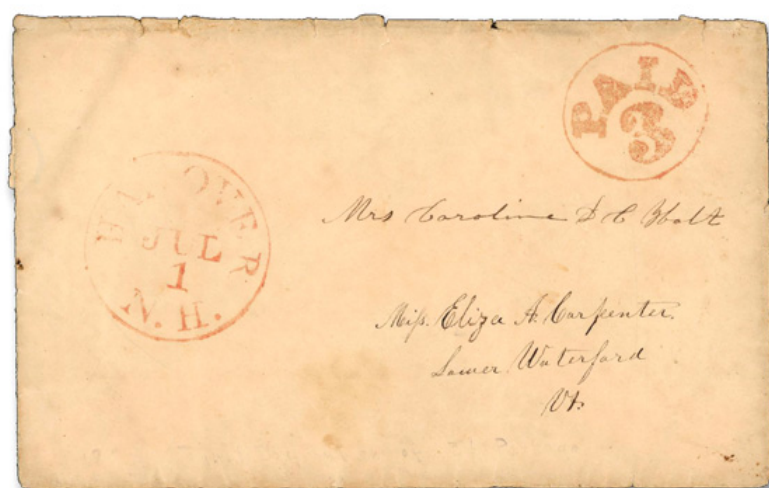 PAID
3
HANOVER
JUL
1
N.H.
Mrs Caroline D C Holt
Miss. Eliza A. Carpenter.
Lower Waterford
Vt.